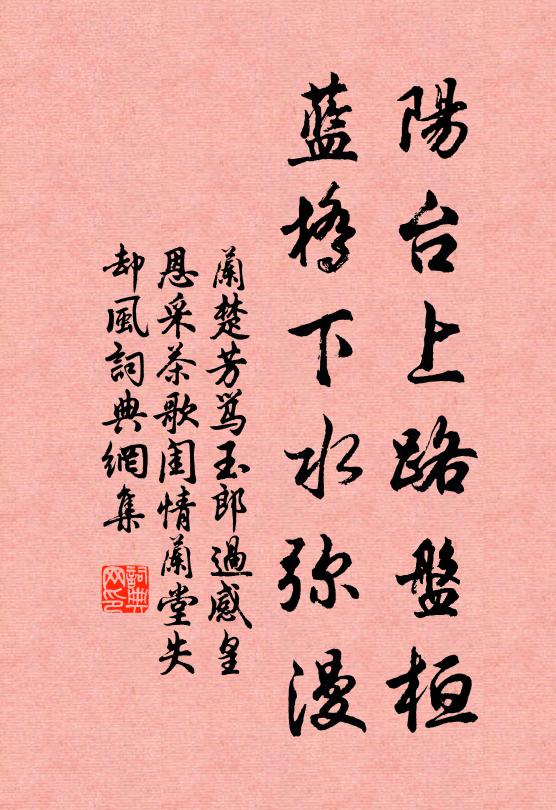 陽台上路盤桓
藍橋下水弥漫
蘭楚芳罵玉郎過感皇
恩采茶歌閨情蘭堂失
却風詞典網集
詞典
网印